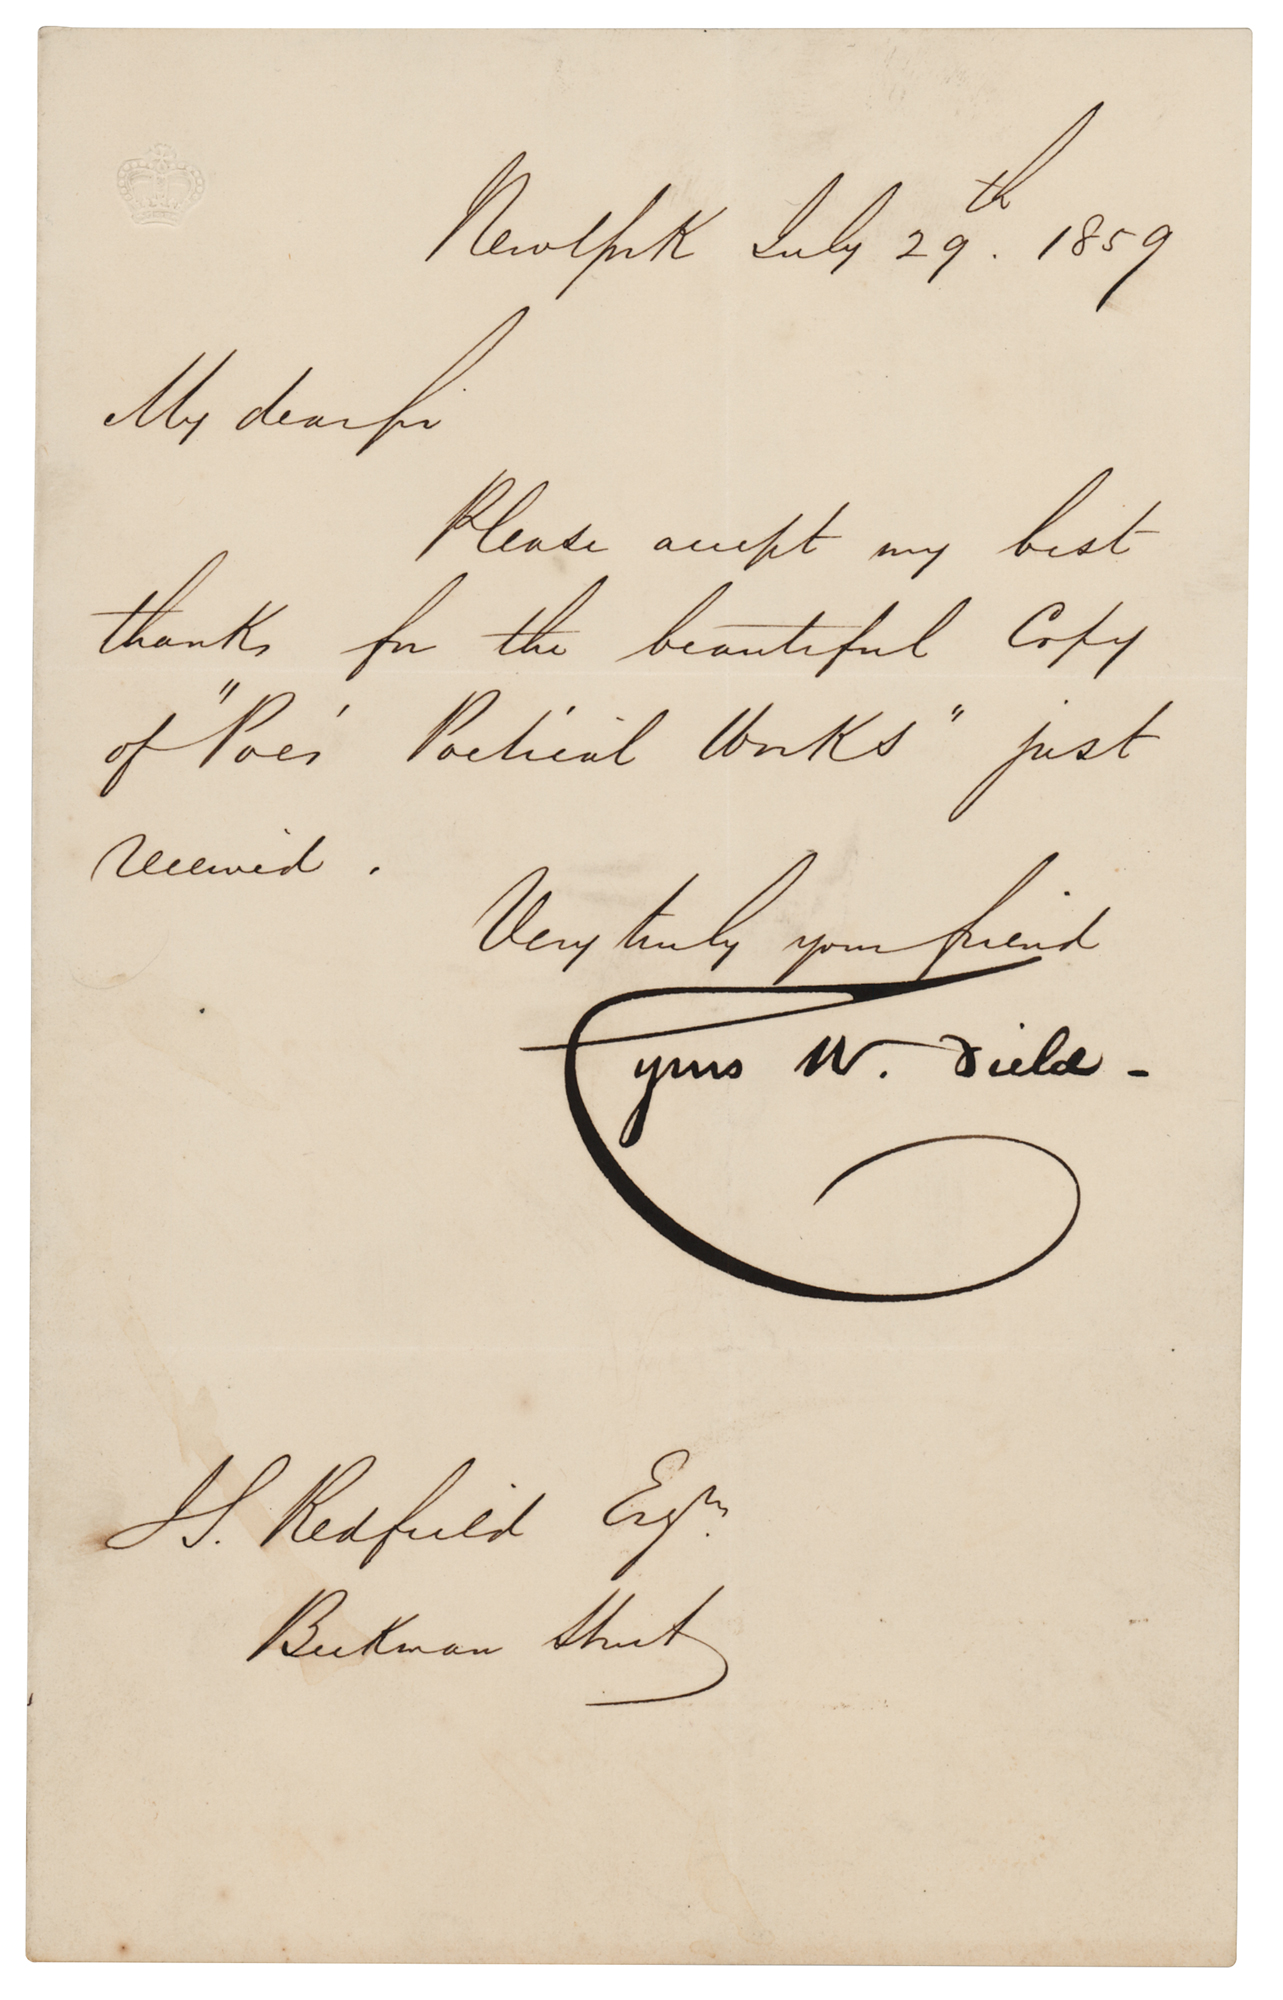 New York July 29th. 1859
My dear Sir
Please accept my best
thanks for the beautiful Copy
of "Poe's Poetical Works" just
received.
Very truly your friend
Cyrus W. Field -
J S. Redfield Esqre.
Beekman Street